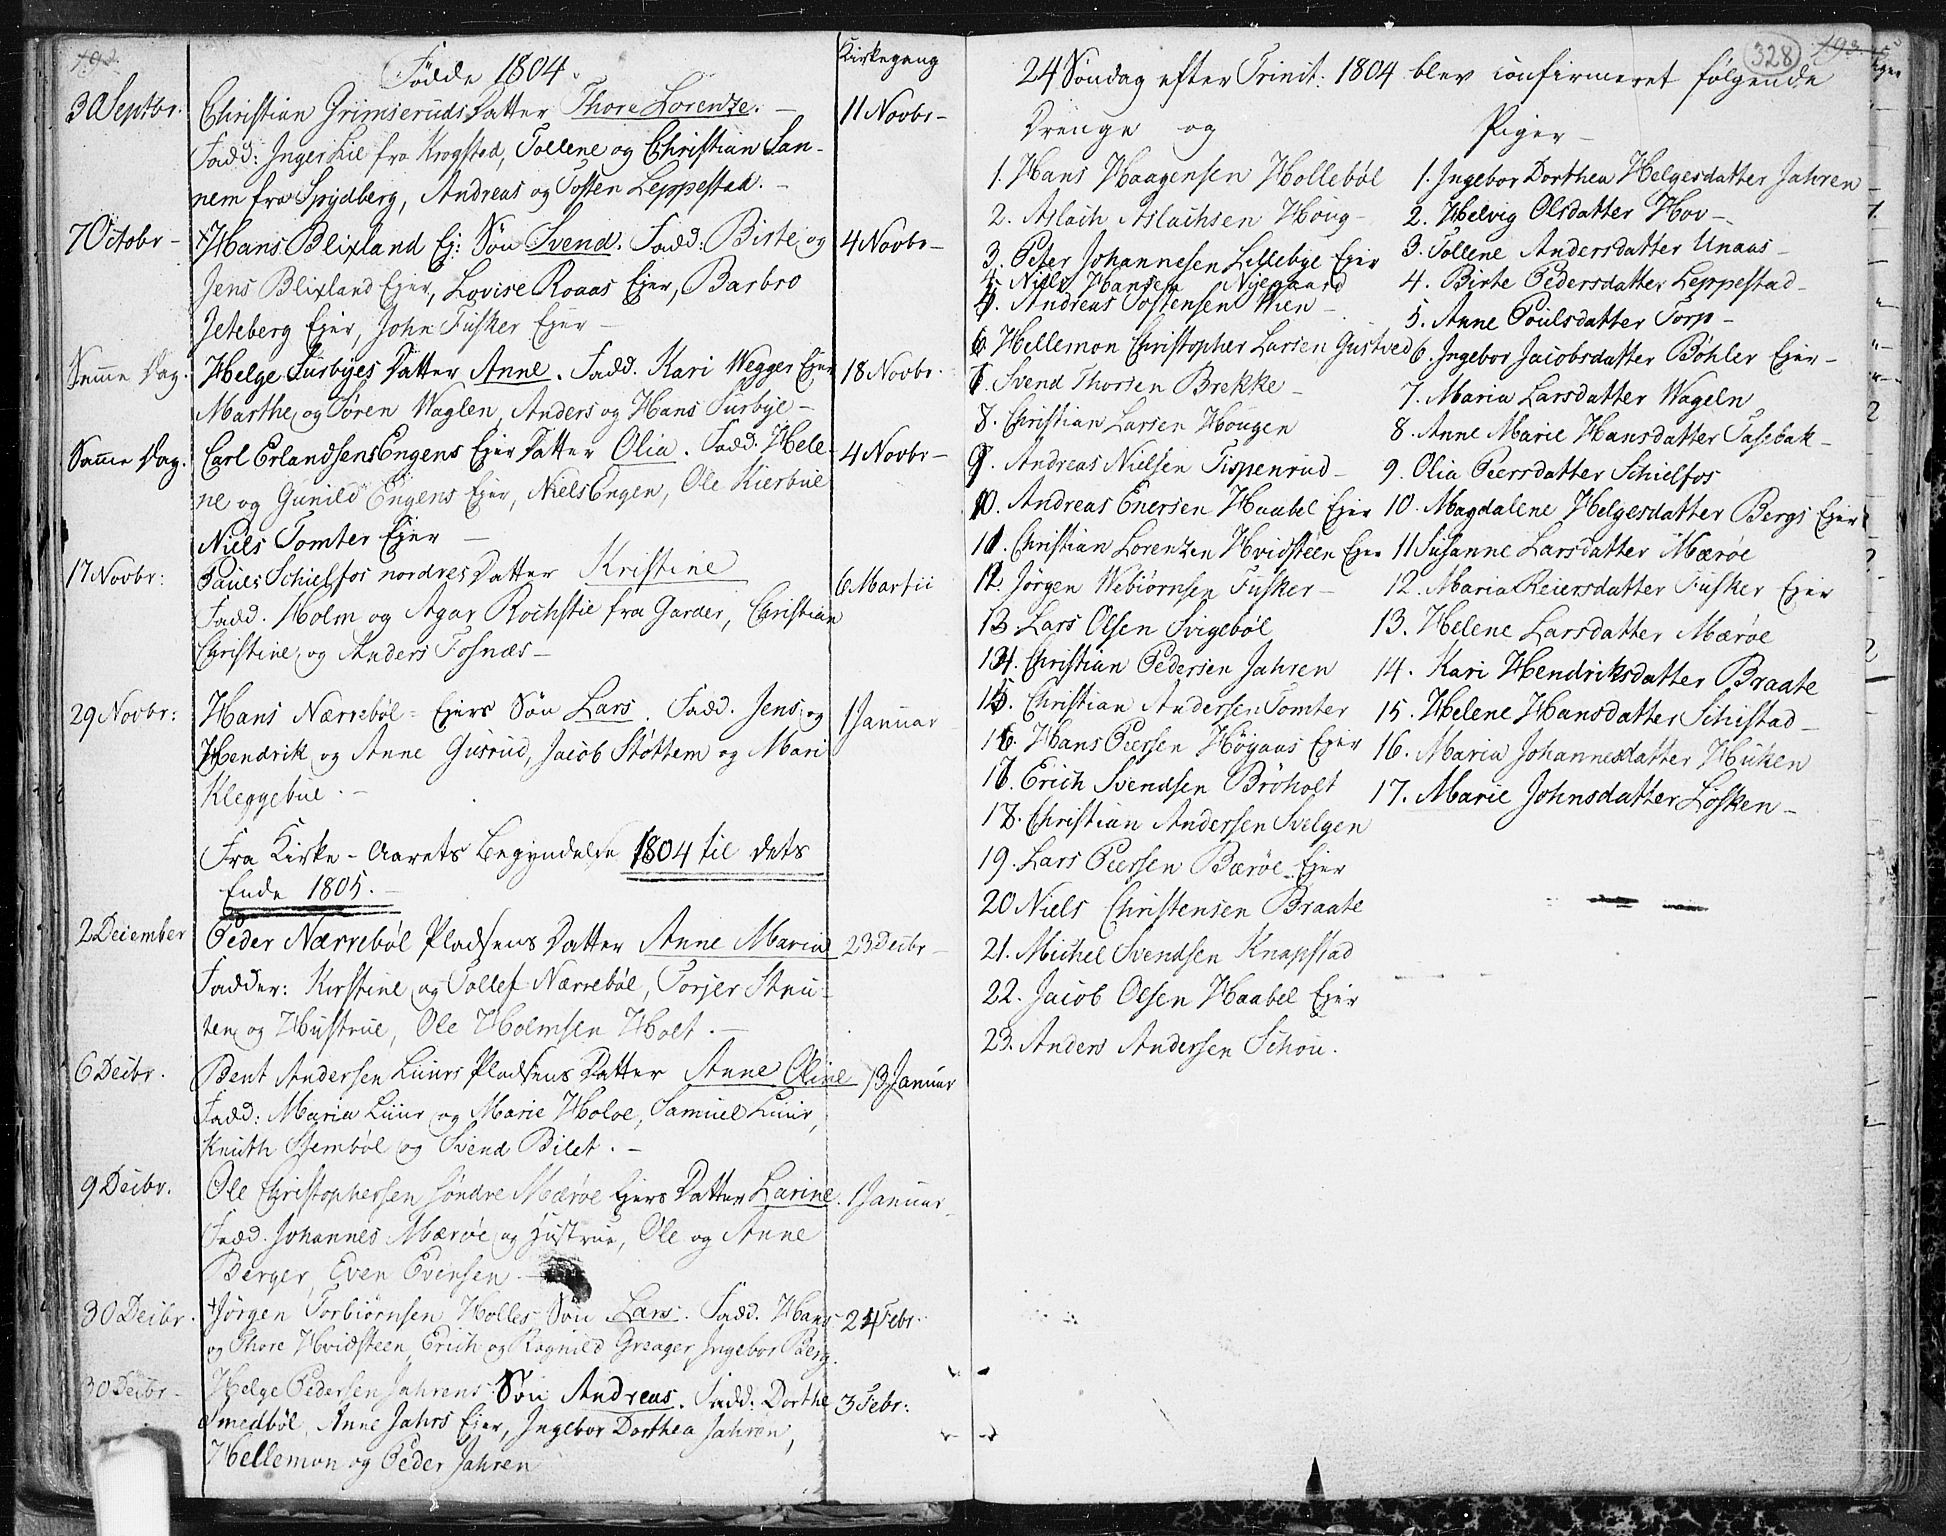 192.
Fødde 1804.
Kirkegang
30 Septbr. Christian Grimseruds Datter Thore Lorenze. — 11 Novbr —
Fadd: Inger Lie fra Krogsted, Tollene og Christian San-
nem fra Spydberg, Andreas og Tosten Leppestad. —
7 Octobr — Hans Blixland Ej: Søn Svend. Fadd: Birte og 4 Novbr —
Jens Blixland Ejer, Lovise Roaas Ejer, Barbro
Jeteberg Ejer, John Fusker Ejer —
Samme Dag. Helge Furbyes Datter Anne. Fadd. Kari Wegger Ejer 18 Novbr.
Marthe og Søren Waglen, Anders og Hans Furbye —
Samme Dag. Carl Erlandsens Engens Ejer Datter Olia. Fadd. Hele- 4 Novbr —
ne og Gunild Engens Ejer, Niels Engen, Ole Kierbue
Niels Tomter Ejer —
17 Novbr: Paules Schielfos nordres Datter Kristine 6 Martii
Fadd. Holm og Agar Rochstie fra Garder, Christian
Christine og Anders Fosnæs —
29 Novbr: Hans Nærrebøl = Ejers Søn Lars. Fadd. Jens og 1 Januar
Hendrik og Anne Gusrud, Jacob Støttem og Mari
Kleggebue. —
Fra Kirke-Aarets Begyndelse 1804 til dets
Ende 1805. —
2 December Peder Nærrebøl Pladsens Datter Anne Maria 23 Decbr —
Fadder: Kirstine og Tollef Nærrebøl, Torjer Stru-
ten og Hustrue, Ole Holmsen Holt. —
6 Decbr. Bent Andersen Luurs Pladsens Datter Anne Oline 13 Januar
Fadd: Maria Luur og Marie Holoe, Samuel Luur,
Knuth Stembøl og Svend Bilet. —
9 Decbr. Ole Christophersen søndre Mærøe Ejers Datter Larine. 1 Januar
Fadd. Johannes Mærøe og Hustrue, Ole og Anne
Berger, Even Evensen. —
30 Decbr. Jørgen Torbiørnsen Holles Søn Lars. Fadd. Hans 24 Febr.
og Thore Hvidsteen, Erich og Ragnild Greager, Ingebor Berg.
30 Decbr — Helge Pedersen Jahrens Søn Andreas. Fadd: Dorthe 3 Febr:
Smedbøl, Anne Jahrs Ejer, Ingebor Dorthea Jahren,
Hellemon og Peder Jahren
328
193.
24 Søndag efter Trinit: 1804 blev confirmeret følgende
Drenge og
1. Hans Haagensen Hollebøl
2. Aslach Aslachsen Houg —
3. Peter Johannesen Lillebye Ejer
4. Niels Hansen Nyegaard
5. Andreas Tostensen Wien —
6. Hellemon Christopher Larsen Gustved
7. Svend Thorsen Brekke —
8. Christian Larsen Hougen
9. Andreas Nielsen Tispenrud —
10. Andreas Enersen Haabel Ejer
11. Christian Lorenzen Hvidsteen Ejer
12. Jørgen Webiørnsen Fusker —
13. Lars Olsen Svigebøl
14. Christian Pedersen Jahren
15. Christian Andersen Tomter
16. Hans Peersen Høgaas Ejer
17. Erich Svendsen Brøholt
18. Christian Andersen Svelgen
19. Lars Peersen Bærøe Ejer
20 Niels Christensen Braate
21. Michel Svendsen Knapstad
22. Jacob Olsen Haabel Ejer
23. Anders Andersen Schou.
Piger —
1. Ingebor Dorthea Helgesdatter Jahren —
2. Helvig Olsdatter Hov —
3. Tollene Andersdatter Unaas —
4. Birte Pedersdatter Leppestad —
5. Anne Poulsdatter Torp —
6. Ingebor Jacobsdatter Bøhler Ejer —
7. Maria Larsdatter Wageln
8. Anne Marie Hansdatter Tasebak —
9. Olia Peersdatter Schielfos
10. Magdalene Helgesdatter Bergs Ejer
11 Susanne Larsdatter Mærøe
12. Maria Reiersdatter Fusker Ejer
13. Helene Larsdatter Mærøe
14. Kari Hendriksdatter Braate
15. Helene Hansdatter Schistad —
16. Maria Johannesdatter Huken
17. Marie Johnsdatter Løsken —